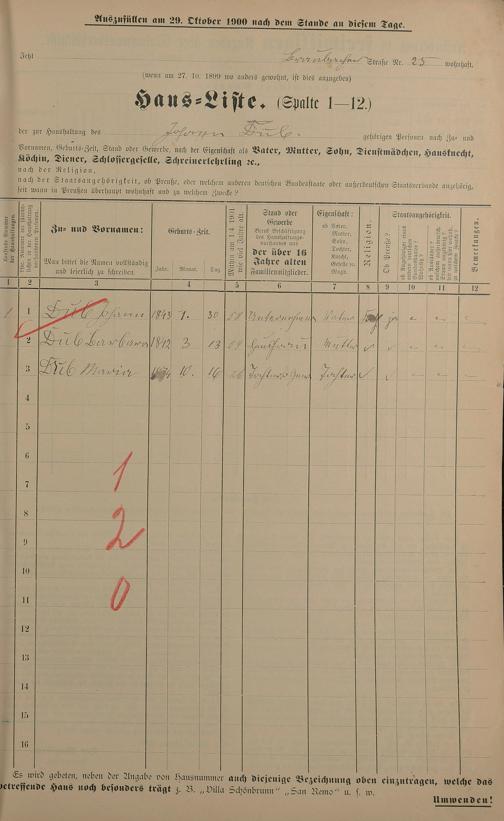 Auszufüllen am 29. Oktober 1900 nach dem Stande an diesem Tage.
Jetzt Straße Nr. 25 wohnhaft.
(wenn am 27. 10. 1899 wo anders gewohnt, ist dies anzugeben)
Haus-Liste. (Spalte 1—12.)
der zur Haushaltung des Johann Dub. gehörigen Personen nach Zu- und
Vornamen, Geburts-Zeit, Stand oder Gewerbe, nach der Eigenschaft als Vater, Mutter, Sohn, Dienstmädchen, Hausknecht,
Köchin, Diener, Schlossergeselle, Schreinerlehrling ec.,
nach der Religion,
nach der Staatsangehörigkeit, ob Preuße, oder welchem anderen deutschen Bundesstaate oder außerdeutschen Staatsverbande angehörig,
seit wann in Preußen überhaupt wohnhaft und zu welchem Zwecke?
Zu- und Vornamen:
Man bittet die Namen vollständig
und leserlich zu schreiben.
Geburts-Zeit.
Jahr. Monat. Tag
Wird am 1.4 1901
wie viel Jahre alt.
Stand oder
Gewerbe
der über 16
Jahre alten
Familienmitglieder.
Eigenschaft:
ob Vater,
Mutter,
Sohn,
Tochter,
Knecht,
Geselle u.
Magd.
Religion.
Staatsangehörigkeit.
Ob Preuße?
Bemerkungen.
1 2 3 4 5 6 7 8 9 10 11 12
1 1 Dub Johann 1843 1. 30 Vater
2 Dub Barbara 1842 3 13 Hausfrau Mutter
3 Dub Maria 10. 16 26 Tochter
4
5
6
1
7
8
2
9
10
0
11
12
13
14
15
16
Es wird gebeten, neben der Angabe von Hausnummer auch diejenige Bezeichnung oben einzutragen, welche das
betreffende Haus noch besonders trägt z. B. „Villa Schönbrunn" „San Remo" u. s. w.
Umwenden!